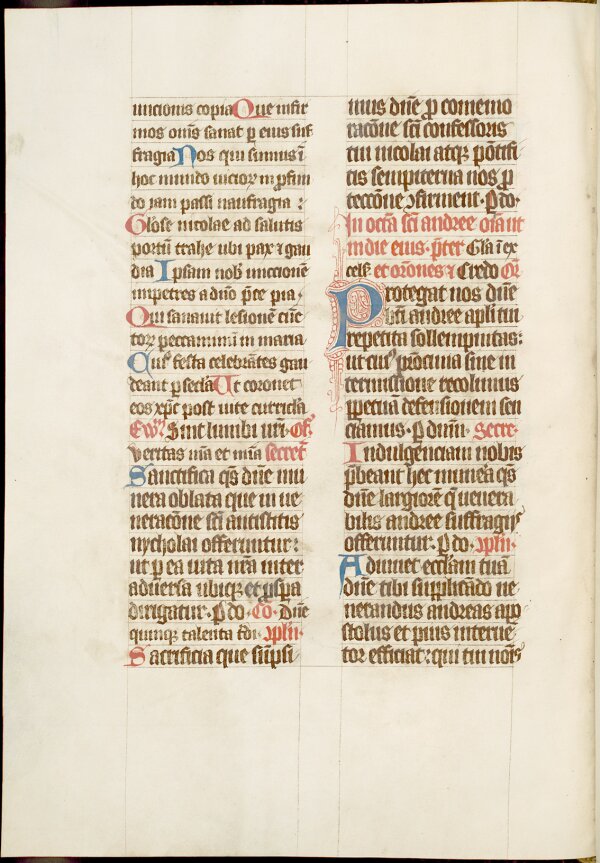 unctionis copia Que infir
mos om̄s sanat ꝑ eius suf
fragia Nos qui sumus ī
hoc mundo uicioꝝ in ꝓfun
do iam passi naufragia :
Gl̓ose nicolae ad salutis
portū trahe ubi pax ⁊ gau
dia Ipsam nob̓ unccionē
impetres a dn̄o p̄ce pia ·
Qui sanauit lesionē cūc
toꝝ peccaminū in maria
Cuiꝰ festa celebrātes gau
deant ꝑ secl̓a Ut coronet
eos xp̄c post uite curricl̓a
Ew̄ Sint lumbi ur̄i · Of̄
veritas m̄a et mīa secret̄
Sanctifica qs̄ dn̄e mu
nera oblata que in ue
neratōne sc̄i antistitis
nycholai offeruntur :
ut ꝑ ea uita nr̄a inter
aduersa ubiqꝫ et ꝓspa
dirigatur · P do · Co · Dn̄e
quinqꝫ talenta t̄di · ꝯpl̄n ·
Sacrificia que sūpsi
mus dn̄e ꝓ comemo
racōne sc̄i confessoris
tui nicolai atqꝫ pōtifi
cis sempiterna nos ꝓ
teccōne ꝯfirment · P do ·
In octa sc̄i andree oīa ut
in die eius · p̄ter Gl̄a ī ex
cels̄ et or̄ones ⁊ Credo Or̄
Protegat nos dn̄e
bt̄i andree apl̓i tui
repetita sollempnitas :
ut cuiꝰ pr̄ocinia sine in
termissione recolimus
ꝑpetuā defensionem sen
ciamus · P dnm̄ · Secre ·
Indulgenciam nobis
p̄beant hec munēa qs̄
dn̄e largiorē q̄ uenera
bilis andree suffragiis
offeruntur · P do · ꝯpl̄n ·
Adiuuet eccl̄am tuā
dn̄e tibi supplicādo ue
nerandus andreas apo
stolus et pius interue
tor efficiat : qui tui noīs